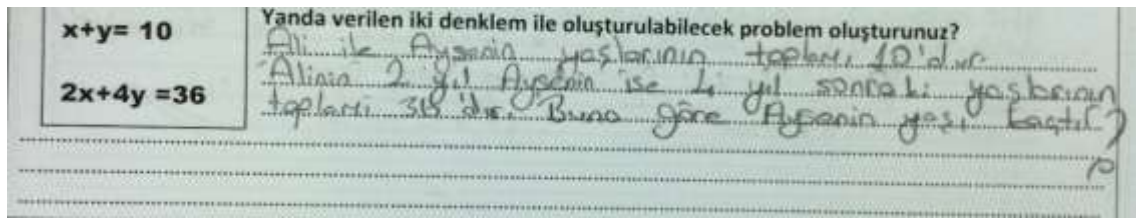 x+y= 10
2x+4y =36
Yanda verilen iki denklem ile oluşturulabilecek problem oluşturunuz?
Ali ile Ayşenin yaşlarının toplamı 10'dur.
Alinin 2 yıl Ayşenin ise 4 yıl sonraki yaşlarının
toplamı 36'dır. Buna göre Ayşenin yaşı kaçtır?